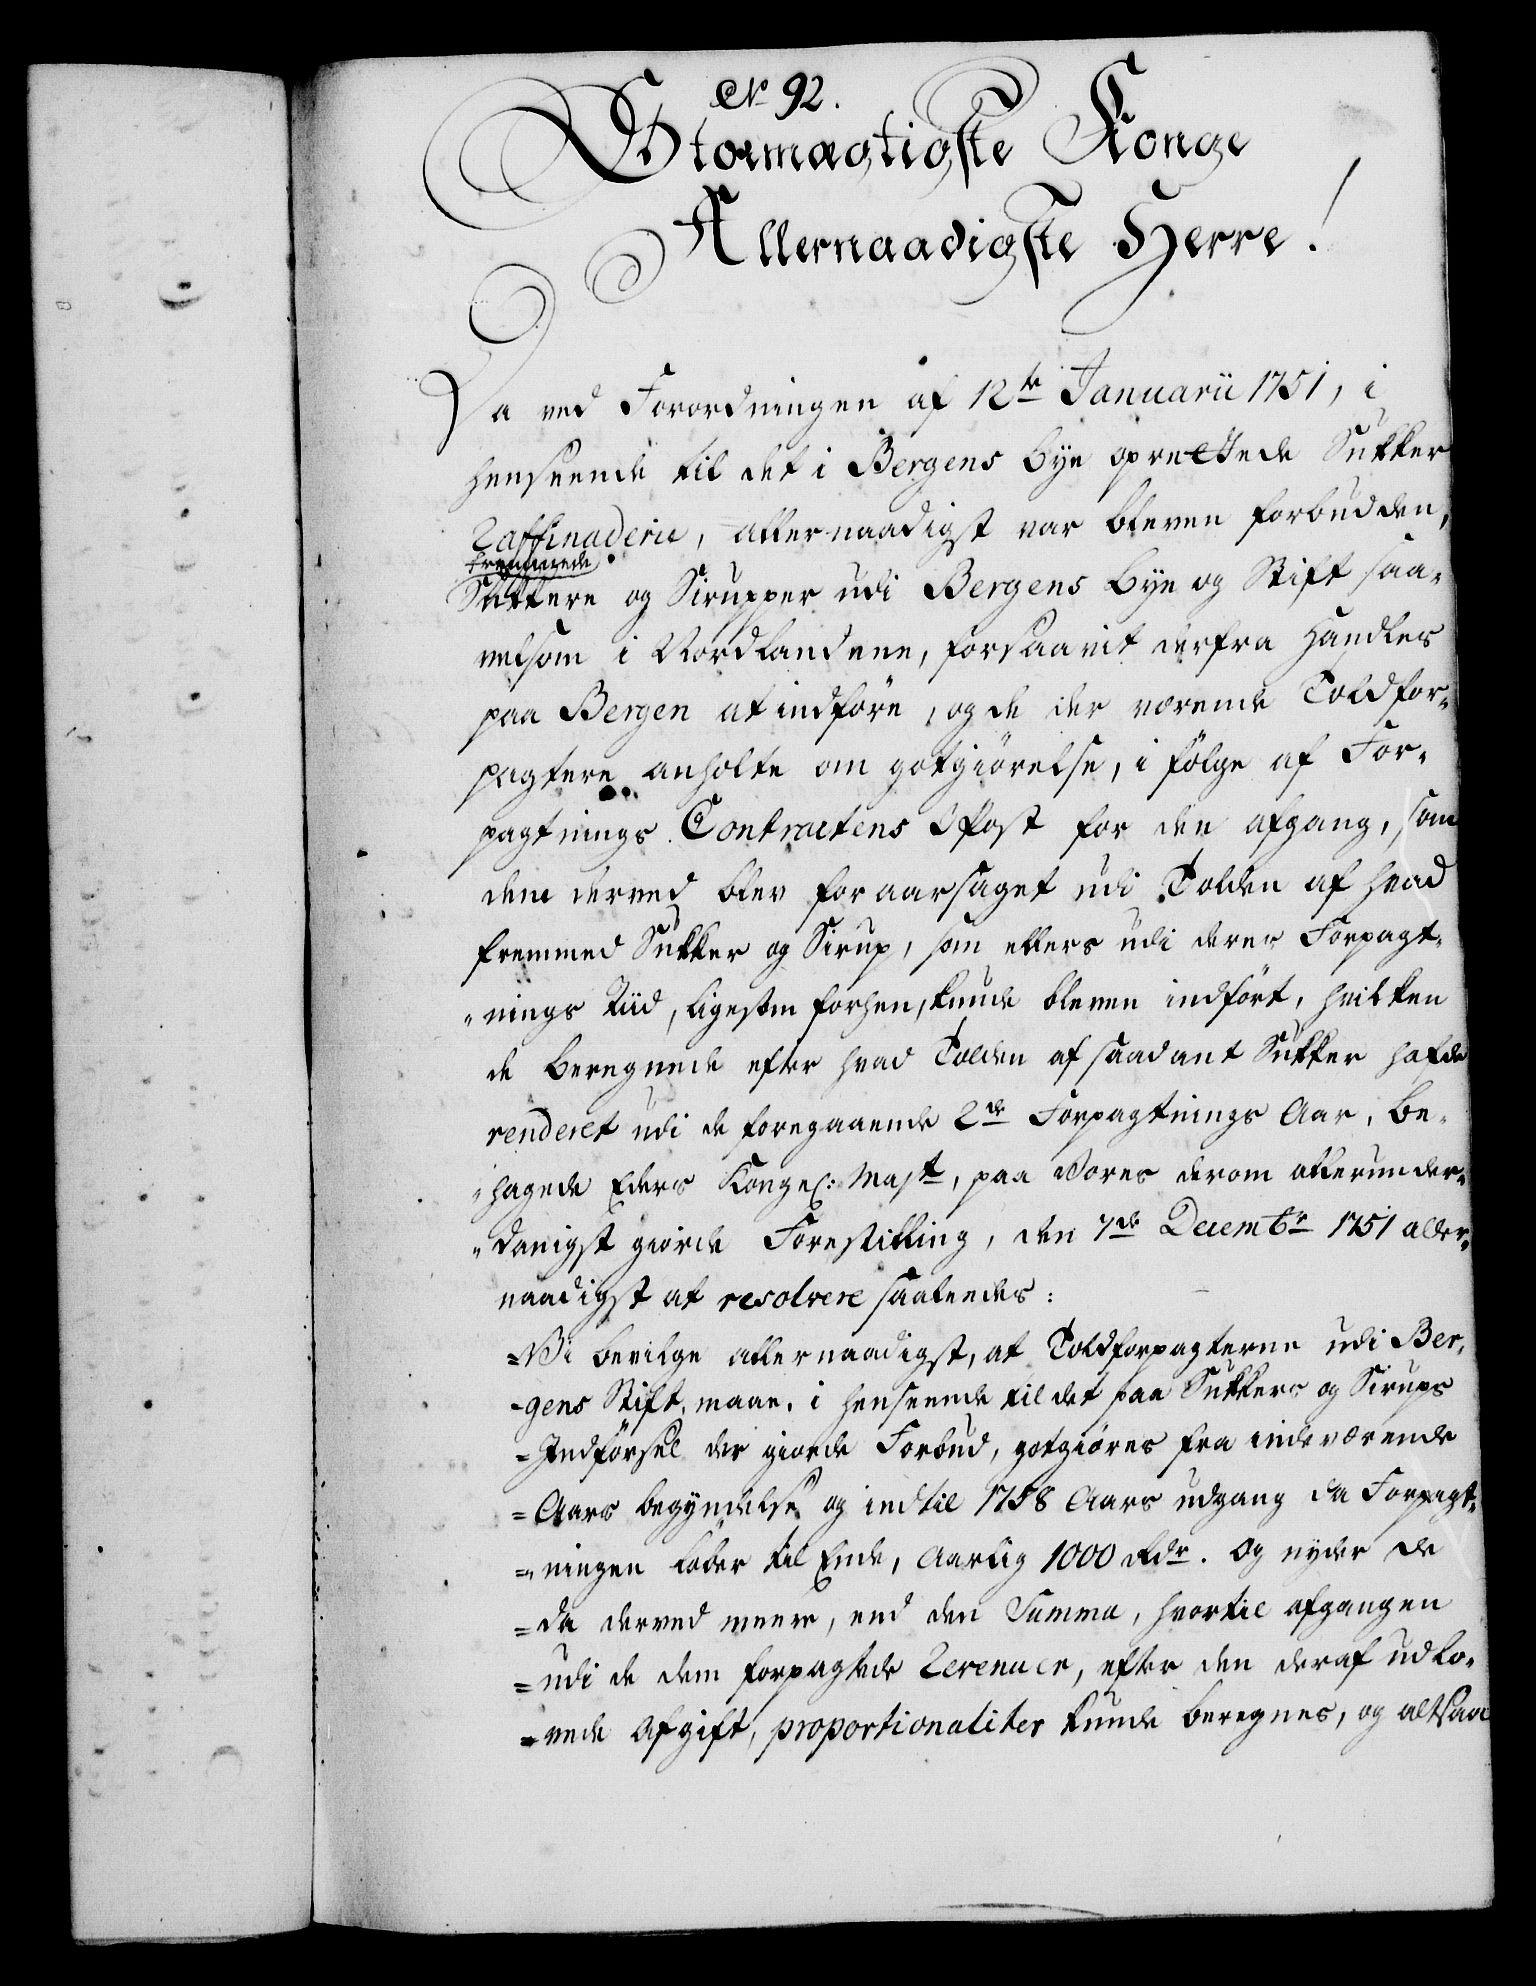 No 92.
Stormægtigste Konge
Allernaadigste Herre!
Da ved Forordningen af 12te Januarii 1751, i
henseende til det i Bergens Bye oprettede Sukker
Raffinaderie, allernaadigst var bleven forbudden,
fremmede
Sukkere og Sirupper udi Bergens Bye og Stift saa-
velsom i Nordlandene, forsaavit derfra handles
paa Bergen at indföre, og de der værende Toldfor-
pagtere anholte om gotgiörelse, i fölge af For-
pagtnings Contractens Post for den afgang, som
dem derved blev foraarsaget udi Tolden af hvad
fremmed Sukker og Sirup, som ellers udi deres Forpagt-
nings Tiid, ligesom forhen, kunde bleven indfört, hvilken
de beregnede efter hvad Tolden af saadant Sukker hafde
renderet udi de foregaaende 2de Forpagtnings Aar, be-
hagede Eders Kongel: Majt, paa Vores derom allerunder-
danigst giorde Forestilling, den 7de Decembr 1751 aller-
naadigst at resolvere saaledes:
=Vi bevilge allernaadigst, at Toldforpagterne udi Ber-
-gens Stift, maae, i henseende til det paa Sukkers og Sirups
=Indförsel der giorde Forbud, gotgiöres fra indeværende
=Aars begyndelse og indtil 1758 Aars udgang da Forpagt-
=ningen löber til Ende, Aarlig 1000 Rdr. Og nyder de
=da derved meere, end den Summa, hvortil afgangen
=udi de dem forpagtede Revenuer, efter den deraf udlo-
=vede Afgift, proportionaliter kunde beregnes, og altsaa